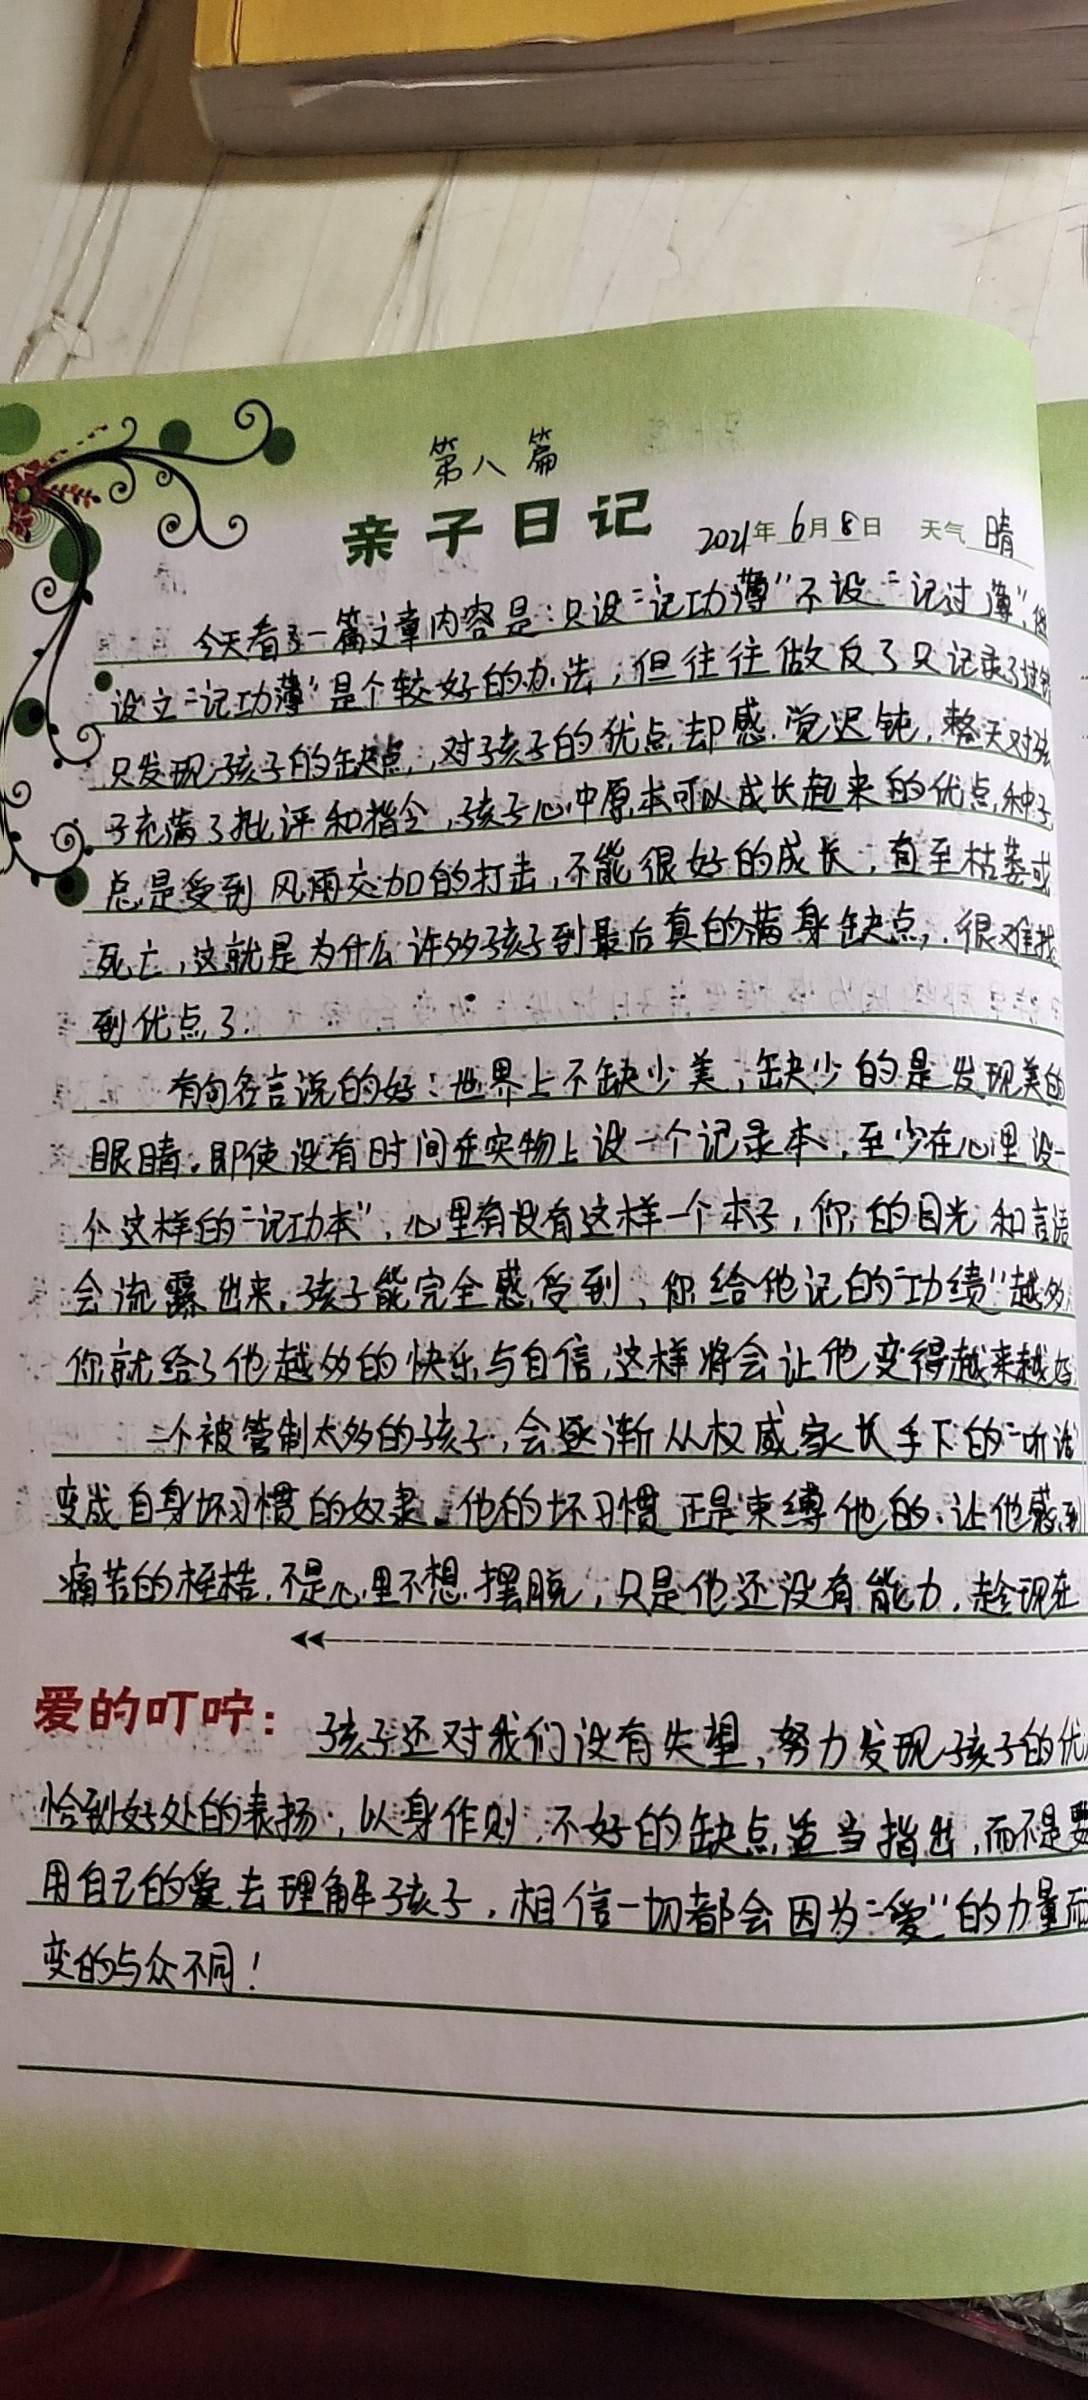 第八篇
亲子日记 2021年6月8日 天气 晴
今天看了一篇文章内容是:只设“记功薄”不设“记过薄”,
设立“记功薄”是个较好的办法,但往往做反了只记录了过错
只发现孩子的缺点,对孩子的优点却感觉迟钝,整天对孩
子充满了批评和指令,孩子心中原本可以成长起来的优点种子
总是受到风雨交加的打击,不能很好的成长,直至枯萎或
死亡,这就是为什么许多孩子到最后真的满身缺点,很难找
到优点了.
有句名言说的好:世界上不缺少美,缺少的是发现美的
眼睛。即使没有时间在实物上设一个记录本,至少在心里设一
个这样的“记功本”,心里有没有这样一个本子,你的目光和言语
会流露出来,孩子能完全感受到,你给他记的“功绩”越多,
你就给了他越多的快乐与自信,这样将会让他变得越来越好
一个被管制太多的孩子,会逐渐从权威家长手下的“听话”
变成自身坏习惯的奴隶。他的坏习惯正是束缚他的、让他感到
痛苦的桎梏,不是心里不想摆脱,只是他还没有能力,趁现在
爱的叮咛: 孩子还对我们没有失望,努力发现孩子的优
恰到好处的表扬,以身作则,不好的缺点适当指出,而不是要
用自己的爱去理解孩子,相信一切都会因为“爱”的力量而
变的与众不同!